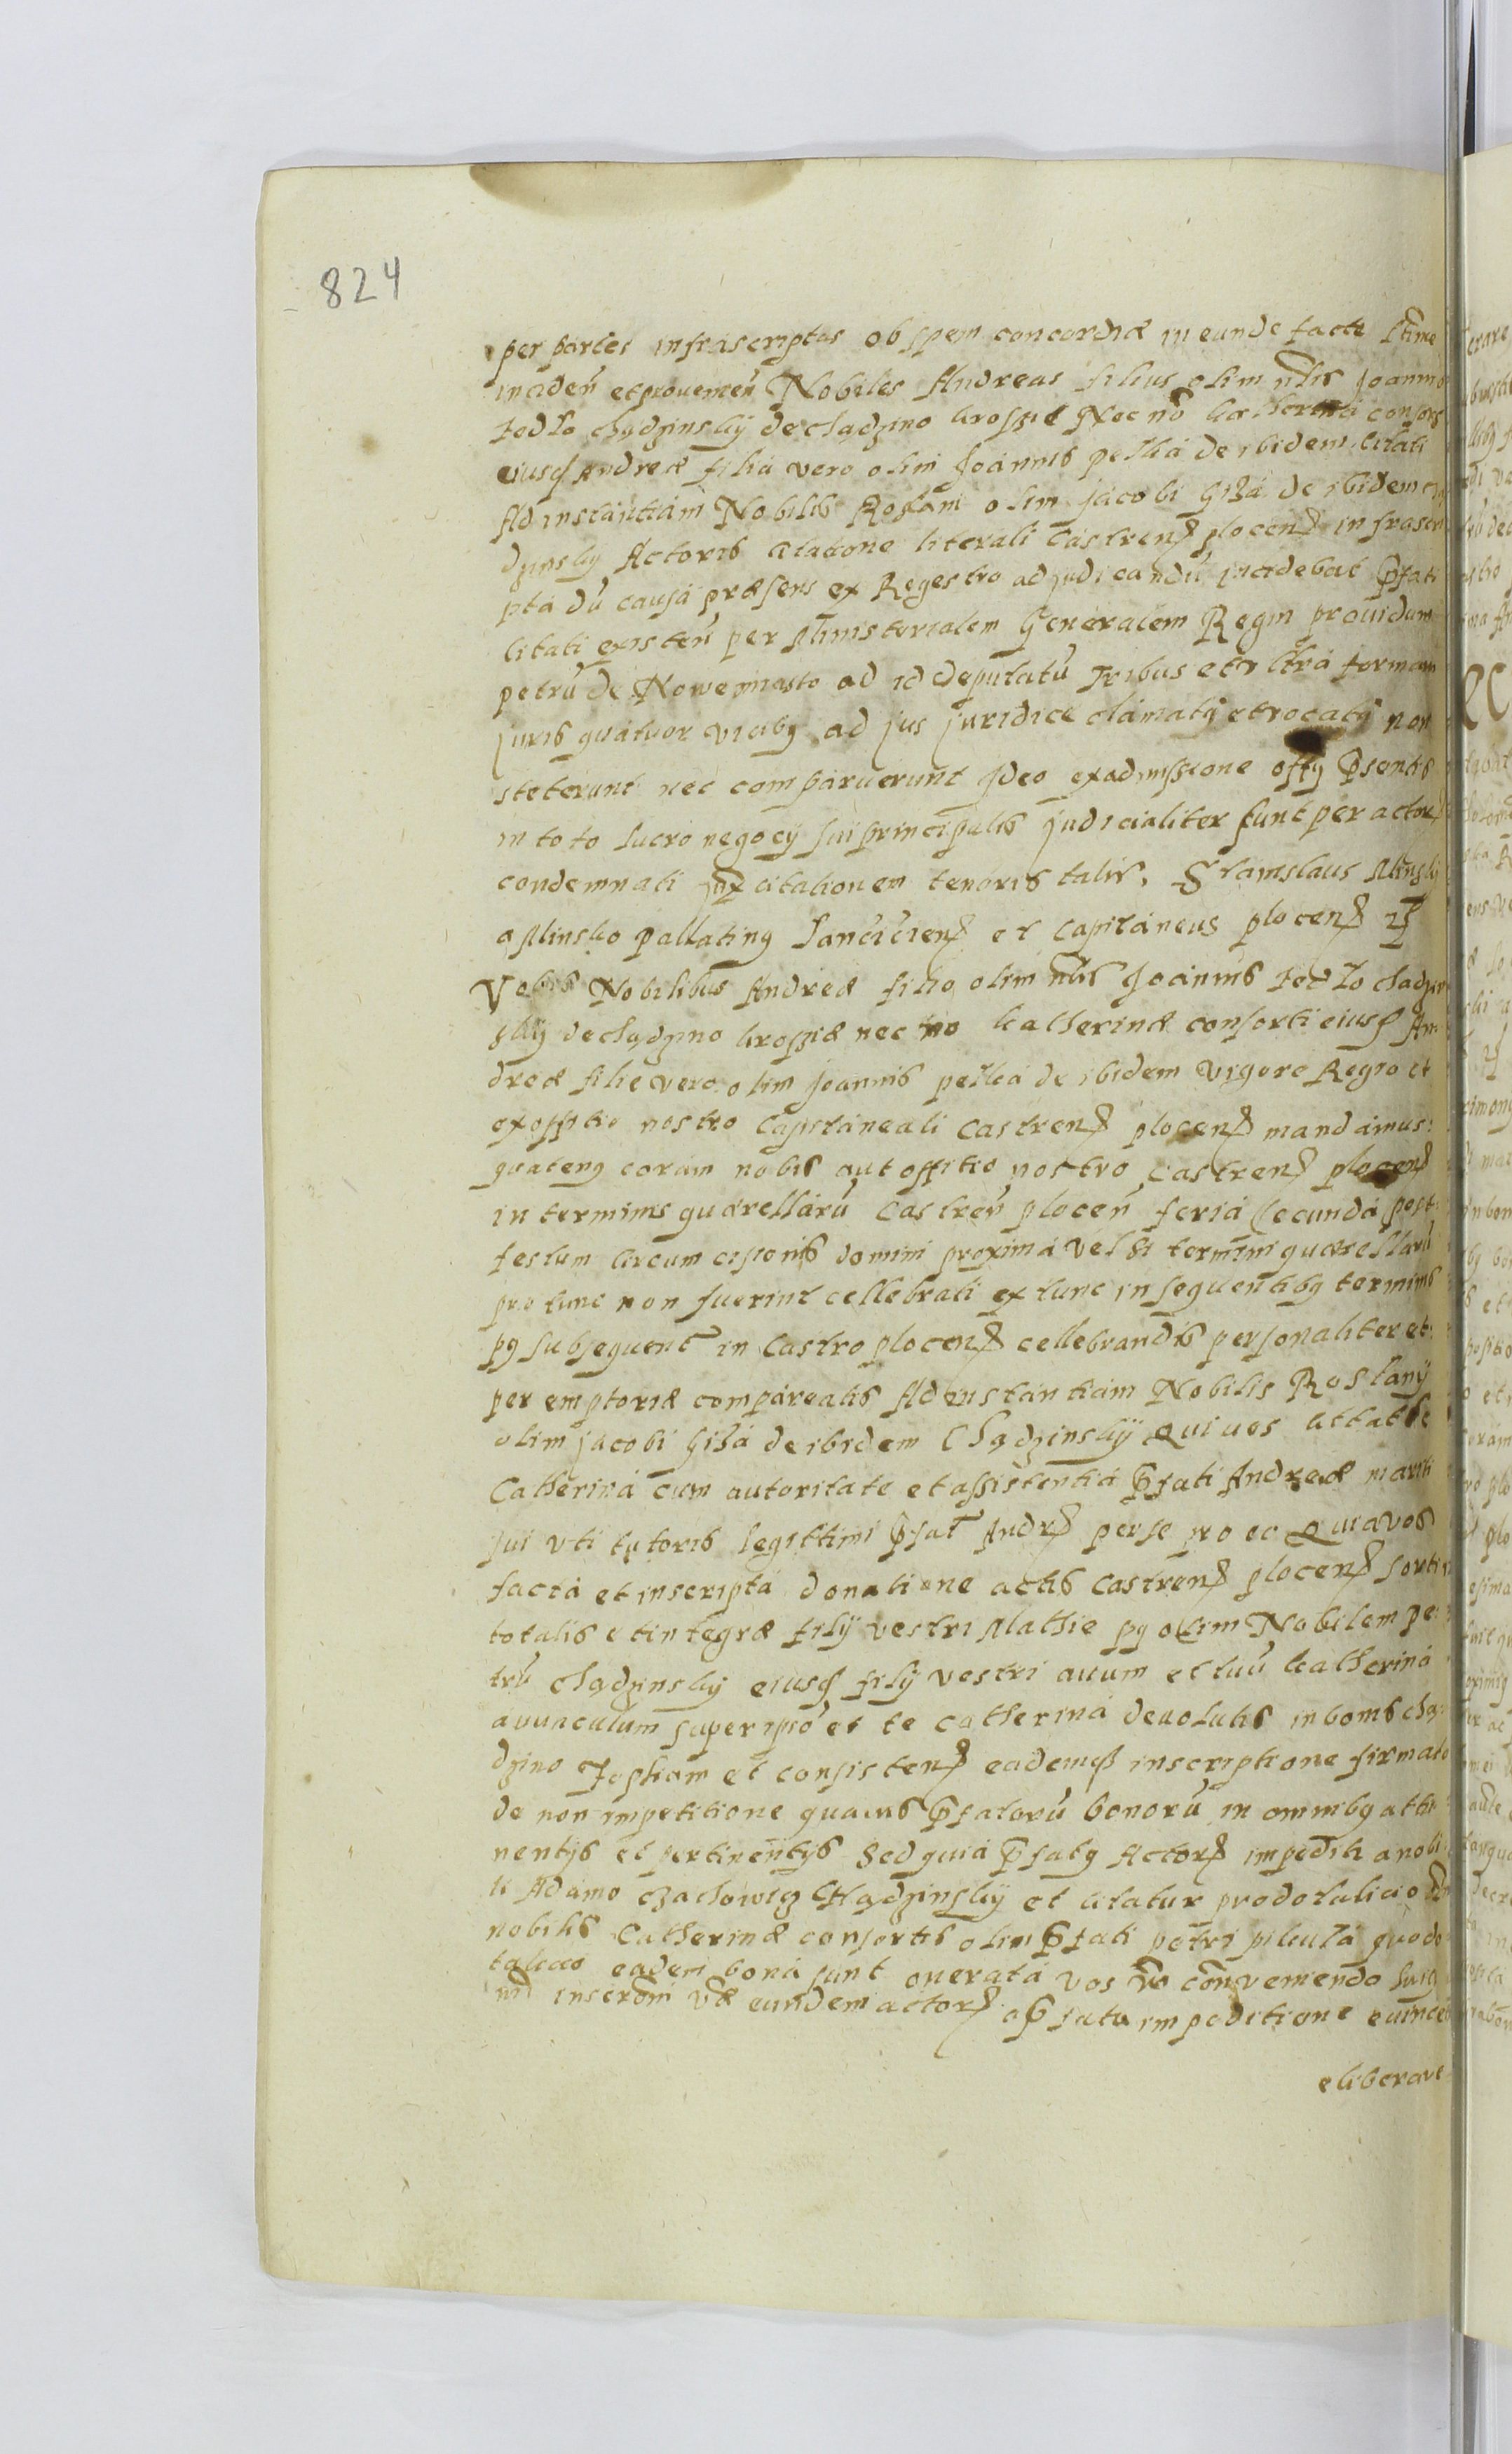 824
per partes infrascriptas ob spem concordiæ ineundæ factæ
inciden̄ et provenien̄ Nobiles Andreas filius olim nlis Joannis
Fedlo chądzinskÿ de chądzino kroszie Nec nō Catherina consors
eiusq Andreæ filia vero olim Joannis pelka de ibidem citati
Ad instantiam Nobilis Roslani olim Jacobi Giza de ibidem
dzinsky Actoris citatione literali Castren̄ plocen̄ infrascri
pta dū causa præsens ex Regestro ad judicandū incidebat p̄fati
citati existen̄ per Ministerialem Generalem Regni providum
petrū de Nowemiasto ad id deputatū tribus et ultra formam
juris quatuor vicibq ad jus juridice clamatÿ et vocatÿ non
steterunt nec comparuerunt Ideo ex admissione offÿ p̄sentis
in toto lucro negocÿ sui principalis judicialiter sunt per actor
condemnati jux citationem tenoris talis, Stanislaus Minsky
a Minsko Pallatinq Lancicien̄ et Capitaneus plocen̄
Vobis Nobilibus Andreæ filio olim nlis Joannis Fedlo chądzin
skÿ de chądzino krosziæ nec no Catherinæ consorti eiusq An
dreæ filie vero olim Joannis pelka de ibidem vigore Regio et
ex offitio nostro Capitaneali Castren̄ plocen̄ mandamus:
quatenq coram nobis aut offitio nostro Castren̄ plocen̄
in terminis quærellarū Castren̄ plocen̄ feria secunda post
festum Circumcisionis domini proxima vel si termini quærellarū
pro tunc non fuerint cellebrati ex tunc in sequentibq terminis
pq subsequent in Castro plocen̄ cellebrandis personaliter et
peremptoriæ compareatis Ad instantiam Nobilis Roslanÿ
olim Jacobi Giza de ibidem Chądzinskÿ Qui vos citat te
Catherina cum autoritate et assistentia p̄fati Andreæ mariti
sui uti tutoris legittimi p̄fat Andr̄ per se pro ec Quia vos
facta et inscripta donatione actis Castren̄ plocen̄ sortis
totalis et integræ filÿ vestri Mathie pq olim Nobilem pe
trū chądzinsky eiusq filÿ vestri avum et tuū Catherina
avunculum super ipsō et te Catherina devolutis in bonis chą
dzino et consisten̄ eademq inscriptione firmato
de non impetitione quavis p̄fatorū bonorū in omnibq atti
nentÿs et pertinentÿs Sed quia p̄fatq Actor impeditr a nobi
li Adamo Chądzinskÿ et citatur pro dotalicio
nobilis Catherinæ consortis olim p̄fati petri pikula quo do
talicio eadem bona sunt onerata vos vō conveniendo
inscrōni væ eundem actor a p̄fata impeditione evince
eliberave